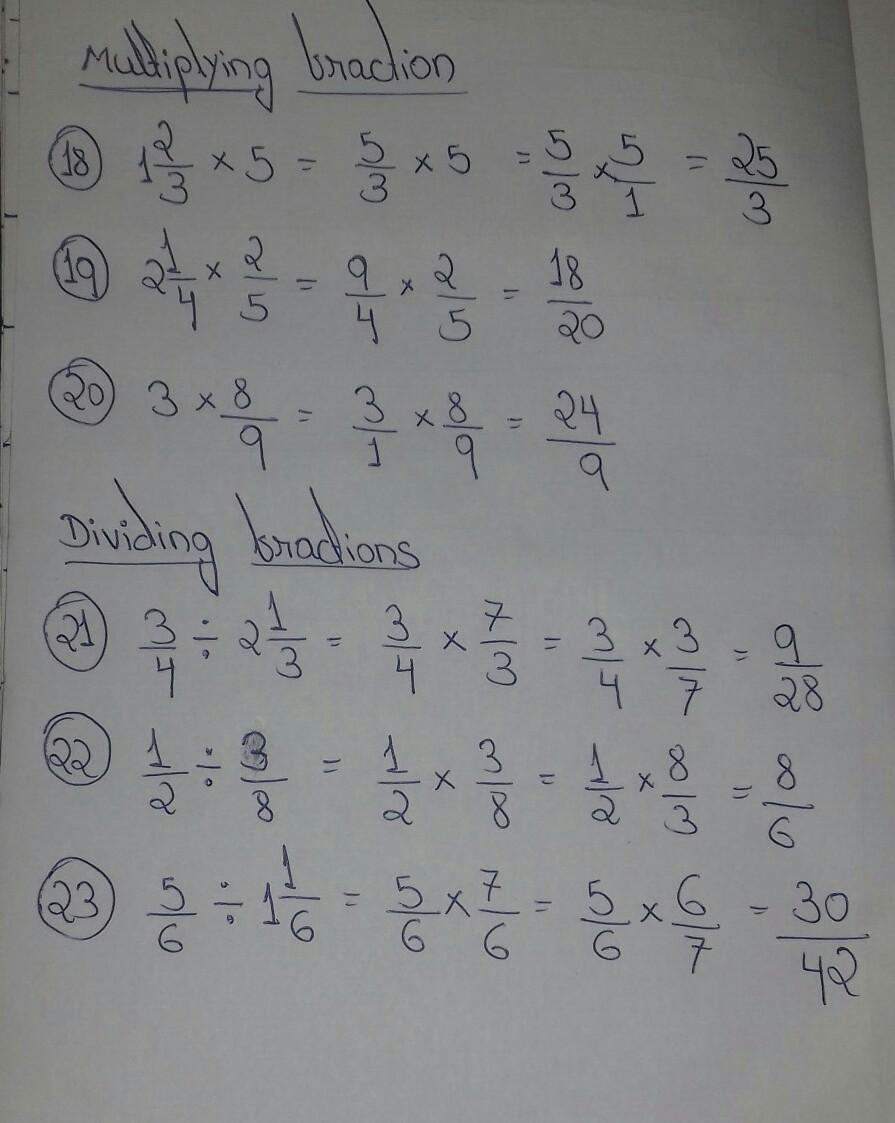 Multiplying fraction
18 1 2/3 × 5 = 5/3 × 5 = 5/3 × 5/1 = 25/3
19 2 1/4 × 2/5 = 9/4 × 2/5 = 18/20
20 3 × 8/9 = 3/1 × 8/9 = 24/9
Dividing fractions
21 3/4 ÷ 2 1/3 = 3/4 × 7/3 = 3/4 × 3/7 = 9/28
22 1/2 ÷ 3/8 = 1/2 × 3/8 = 1/2 × 8/3 = 8/6
23 5/6 ÷ 1 1/6 = 5/6 × 7/6 = 5/6 × 6/7 = 30/42